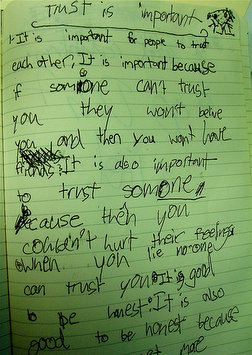 Trust is important
1. It is important for people to trust
each other. It is important because
if someone can't trust
you they won't belive
you and then you won't have
friends. It is also important
to trust someone
because then you
couldn't hurt their feelings
when you lie no-one
can trust you. It is good
to be honest. It is also
good to be honest because